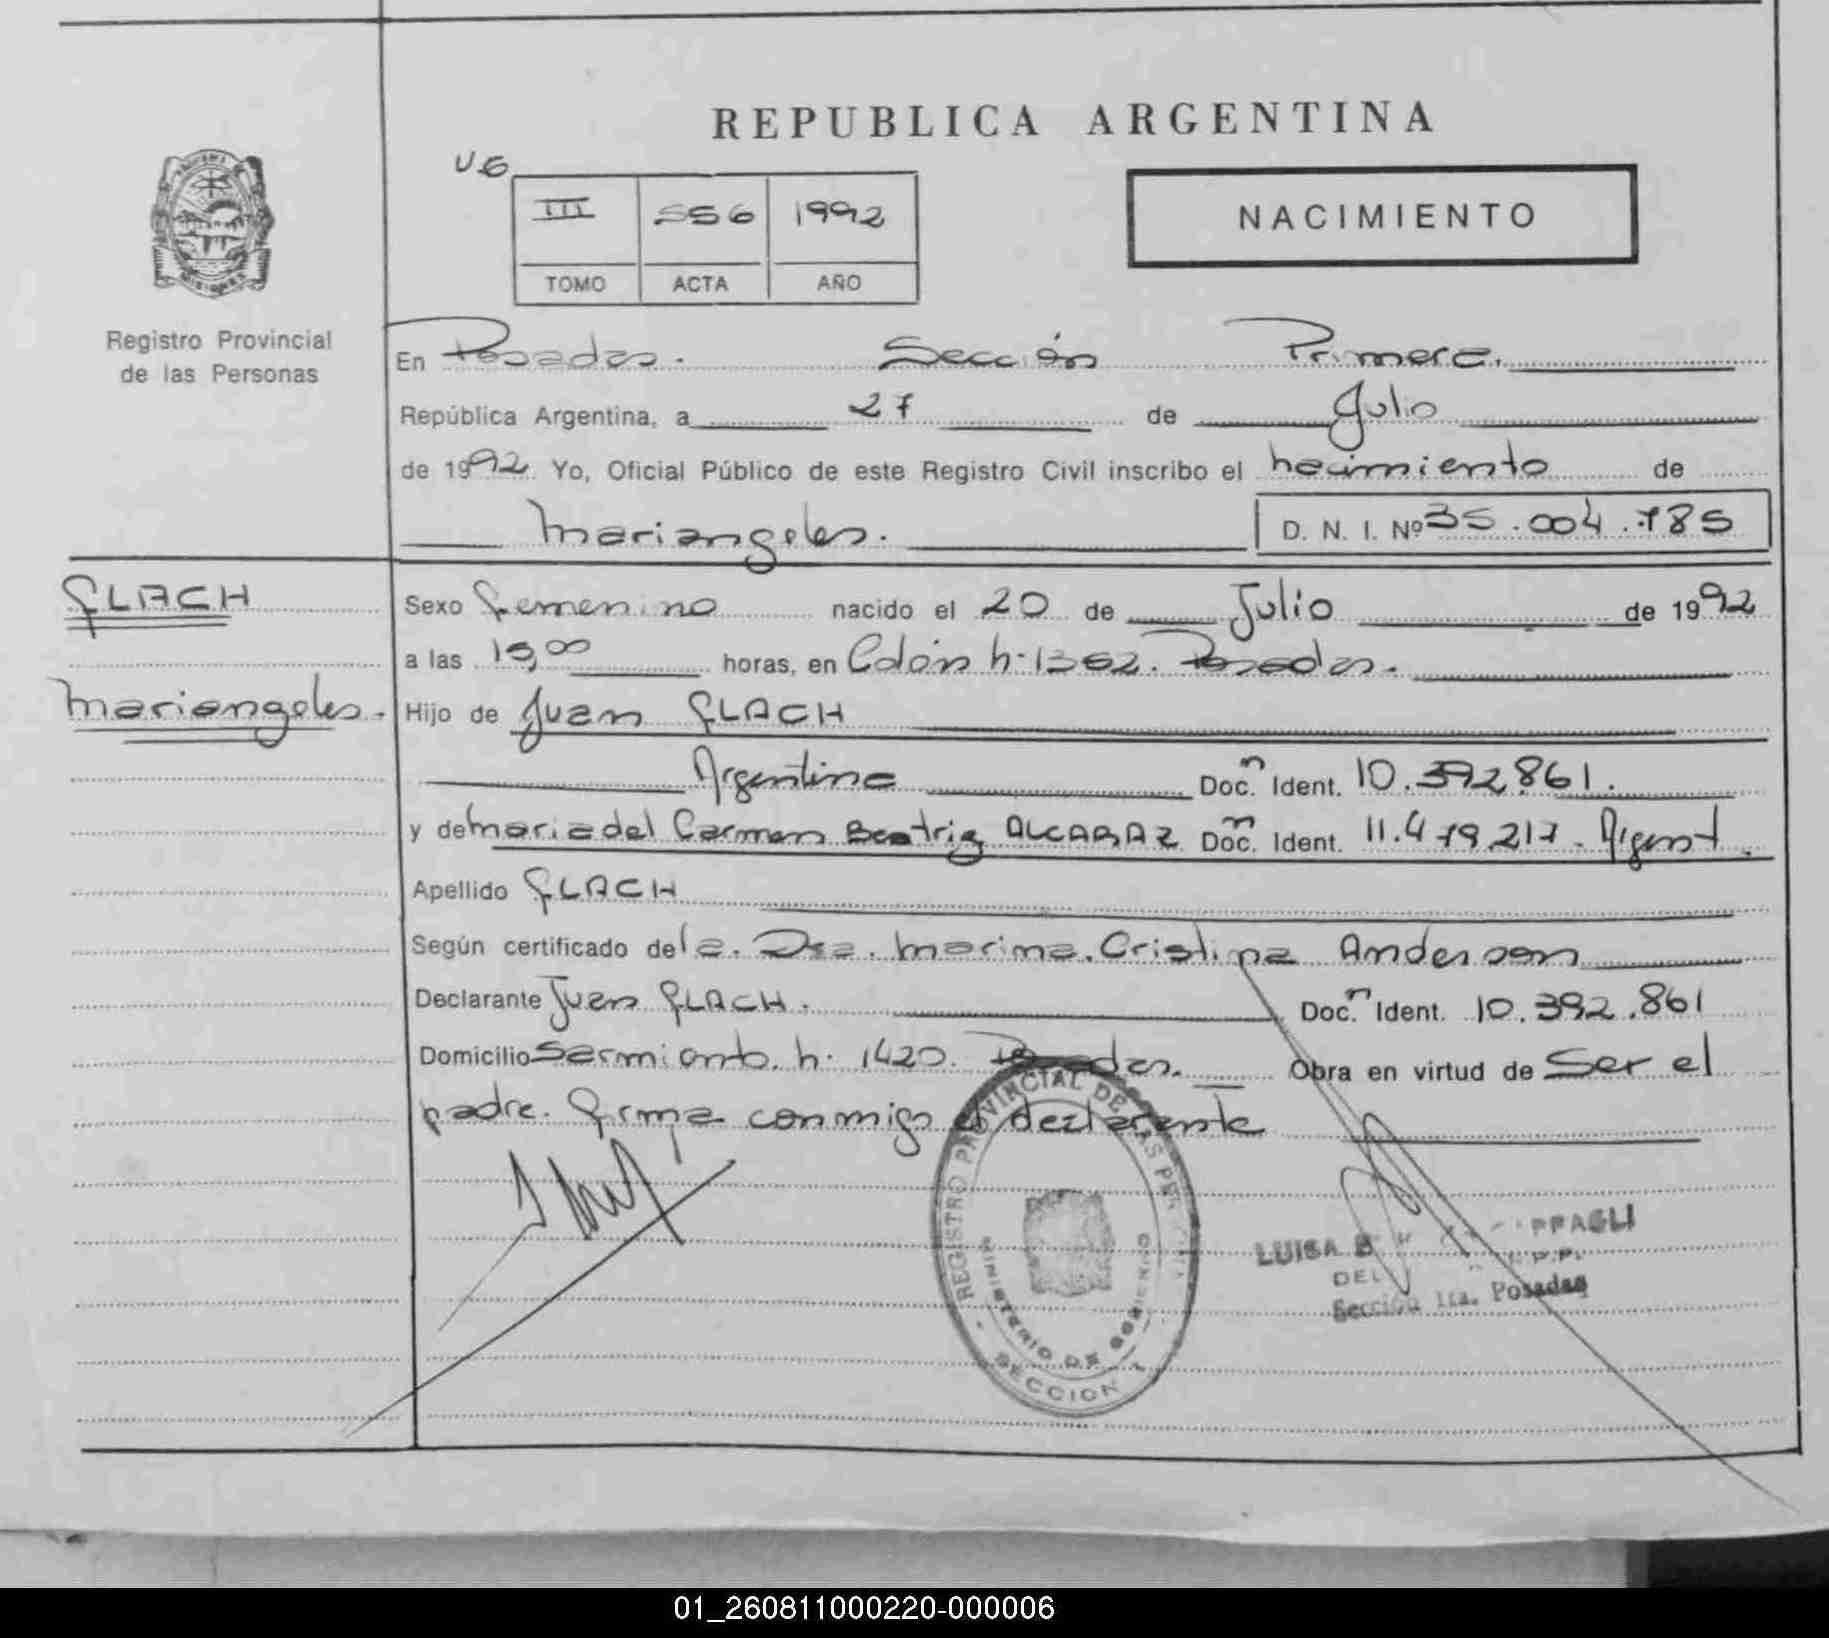 REPUBLICA ARGENTINA
U.G
III 556 1992
TOMO ACTA AÑO
NACIMIENTO
Registro Provincial
de las Personas
En Posadas. Sección Primera.
República Argentina, a 27 de Julio
de 1992 Yo, Oficial Público de este Registro Civil inscribo el nacimiento de
Mariangeles. D. N. I. Nº 35.004.785
FLACH
Mariangeles.
Sexo femenino nacido el 20 de Julio de 1992
a las 15,00 horas, en Colón n. 1362. Posadas.
Hijo de Juan FLACH
Argentino Doc.n Ident. 10.392.861.
y de María del Carmen Beatriz ALCARAZ Doc.n Ident. 11.479.217. Argent.
Apellido FLACH
Según certificado de la. Dra. Marina. Cristina Anderson
Declarante Juan FLACH. Doc.n Ident. 10.392.861
Domicilio Sarmiento. n. 1420. Posadas. Obra en virtud de Ser el
padre. firma conmigo el declarante
REGISTRO PROVINCIAL DE LAS PERSONAS
MINISTERIO DE GOBIERNO
SECCION 1
LUISA B
DEL
Sección 1ra. Posadas
01_260811000220-000006